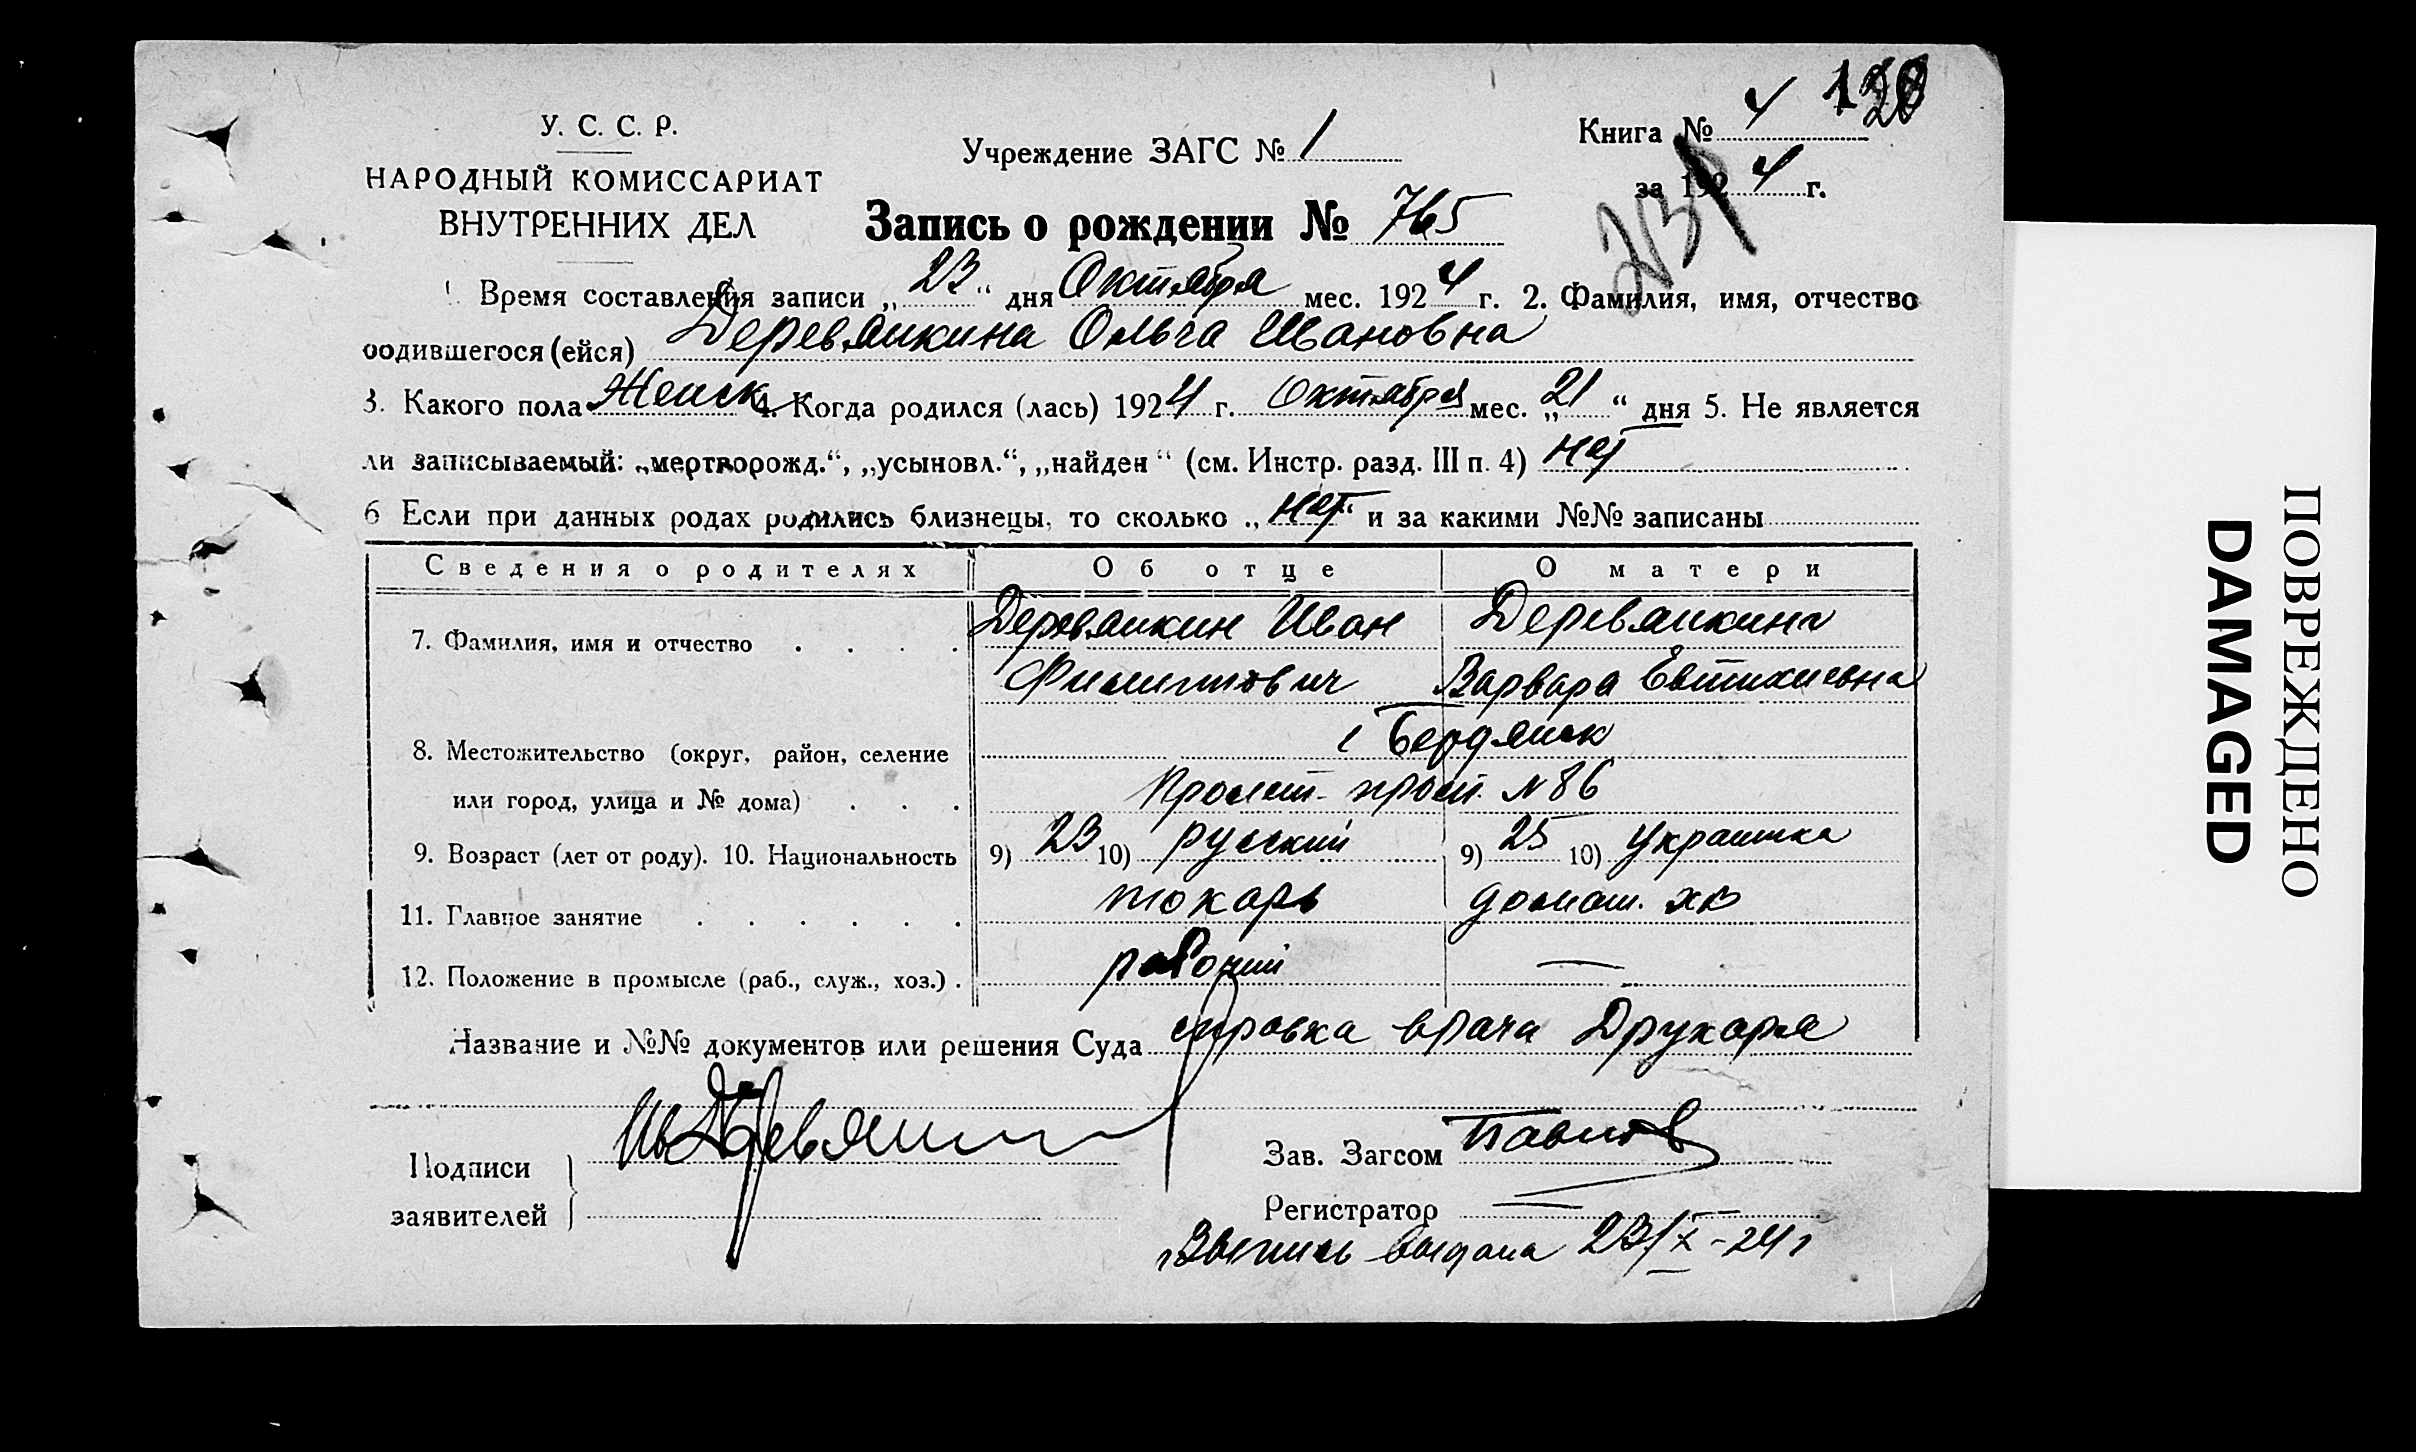 У. С. С. Р.
НАРОДНЫЙ КОМИССАРИАТ
ВНУТРЕННИХ ДЕЛ
Учреждение ЗАГС № 1
Книга № 4
за 1924 г.
Запись о рождении № 765
Время составления записи „23“ дня Октября мес. 1924 г. 2. Фамилия, имя, отчество
родившегося (ейся) Деревянкина Ольга Ивановна
3. Какого пола Женск 4. Когда родился (лась) 1924 г. Октября мес. „21“ дня 5. Не является
ли записываемый: „мертворожд.“, „усыновл.“, „найден“ (см. Инстр. разд. III п. 4) нет
6 Если при данных родах родились близнецы, то сколько „нет“ и за какими №№ записаны
Сведения о родителях Об отце О матери
7. Фамилия, имя и отчество . . . . Деревянкин Иван Деревянкина
Филиппович Варвара Евтихиевна
8. Местожительство (округ, район, селение г Бердянск
или город, улица и № дома) . . . Пролет. просп. N 86
9. Возраст (лет от роду). 10. Национальность 9) 23 10) русский 9) 25 10) украинка
11. Главное занятие . . . . . . токарь домаш. хо
12. Положение в промысле (раб., служ., хоз.) . рабочий —
Название и №№ документов или решения Суда справка врача Друкаря
Подписи
заявителей
Ив Деревянкин
Зав. Загсом
Регистратор —
Выпись выдана 23/X-24 г
ПОВРЕЖДЕНО
DAMAGED